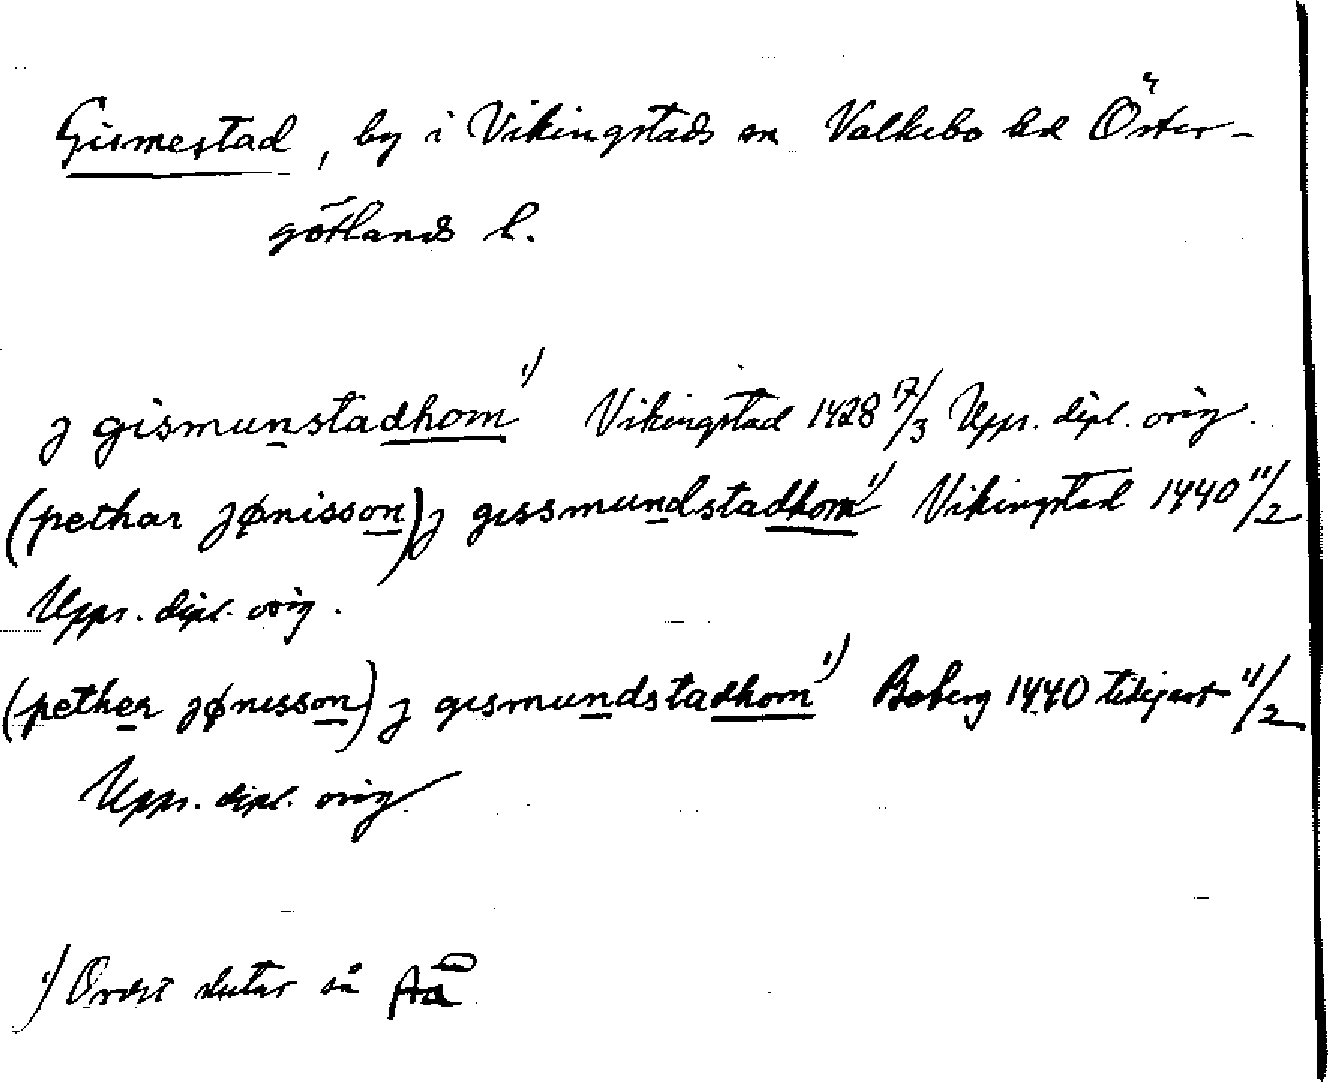 Gismestad, by i Vikingstads sn Valkebo hd Öster-
götlands l.
j gismunstadhom 1) Vikingstad 1428 7/3 Upps. dipl. orig.
(pethar jønisson) j gissmundstadhom 1) Vikingstad 1440 11/2
Upps. dipl. orig.
(pether jønisson) j gismundstadhom 1) Boberg 1440 11/2
Upps. dipl. orig.
1) Ordet slutar så